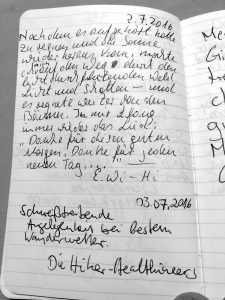 2.7.2016
Nachdem es aufgehört hatte
zu regnen und die Sonne
wieder heraus kam, mach
ich auf den Weg durch den
duftenden Wald
Licht und Schatten – und
es regnete weiter von den
Bäumen. In mir sang
immer wieder das Lied:
"Danke für diesen guten
Morgen, Danke für jeden
neuen Tag ..."
E. Wi - Hi
03.07.2016
Schweißtreibende
Angelegenheit bei bestem
Wanderwetter.
Die Hiker-Healthineers